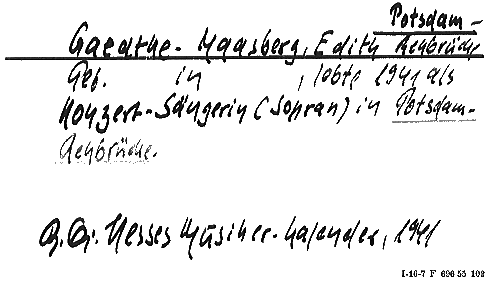 Potsdam-
Gaedthe-Maasberg, Edith Rehbrücke
Geb. in , lebte 1941 als
Konzert-Sängerin (Sopran) in Potsdam-
Rehbrücke.
Hesses Musiker-Kalender, 1941
I-16-7 F 696 55 102